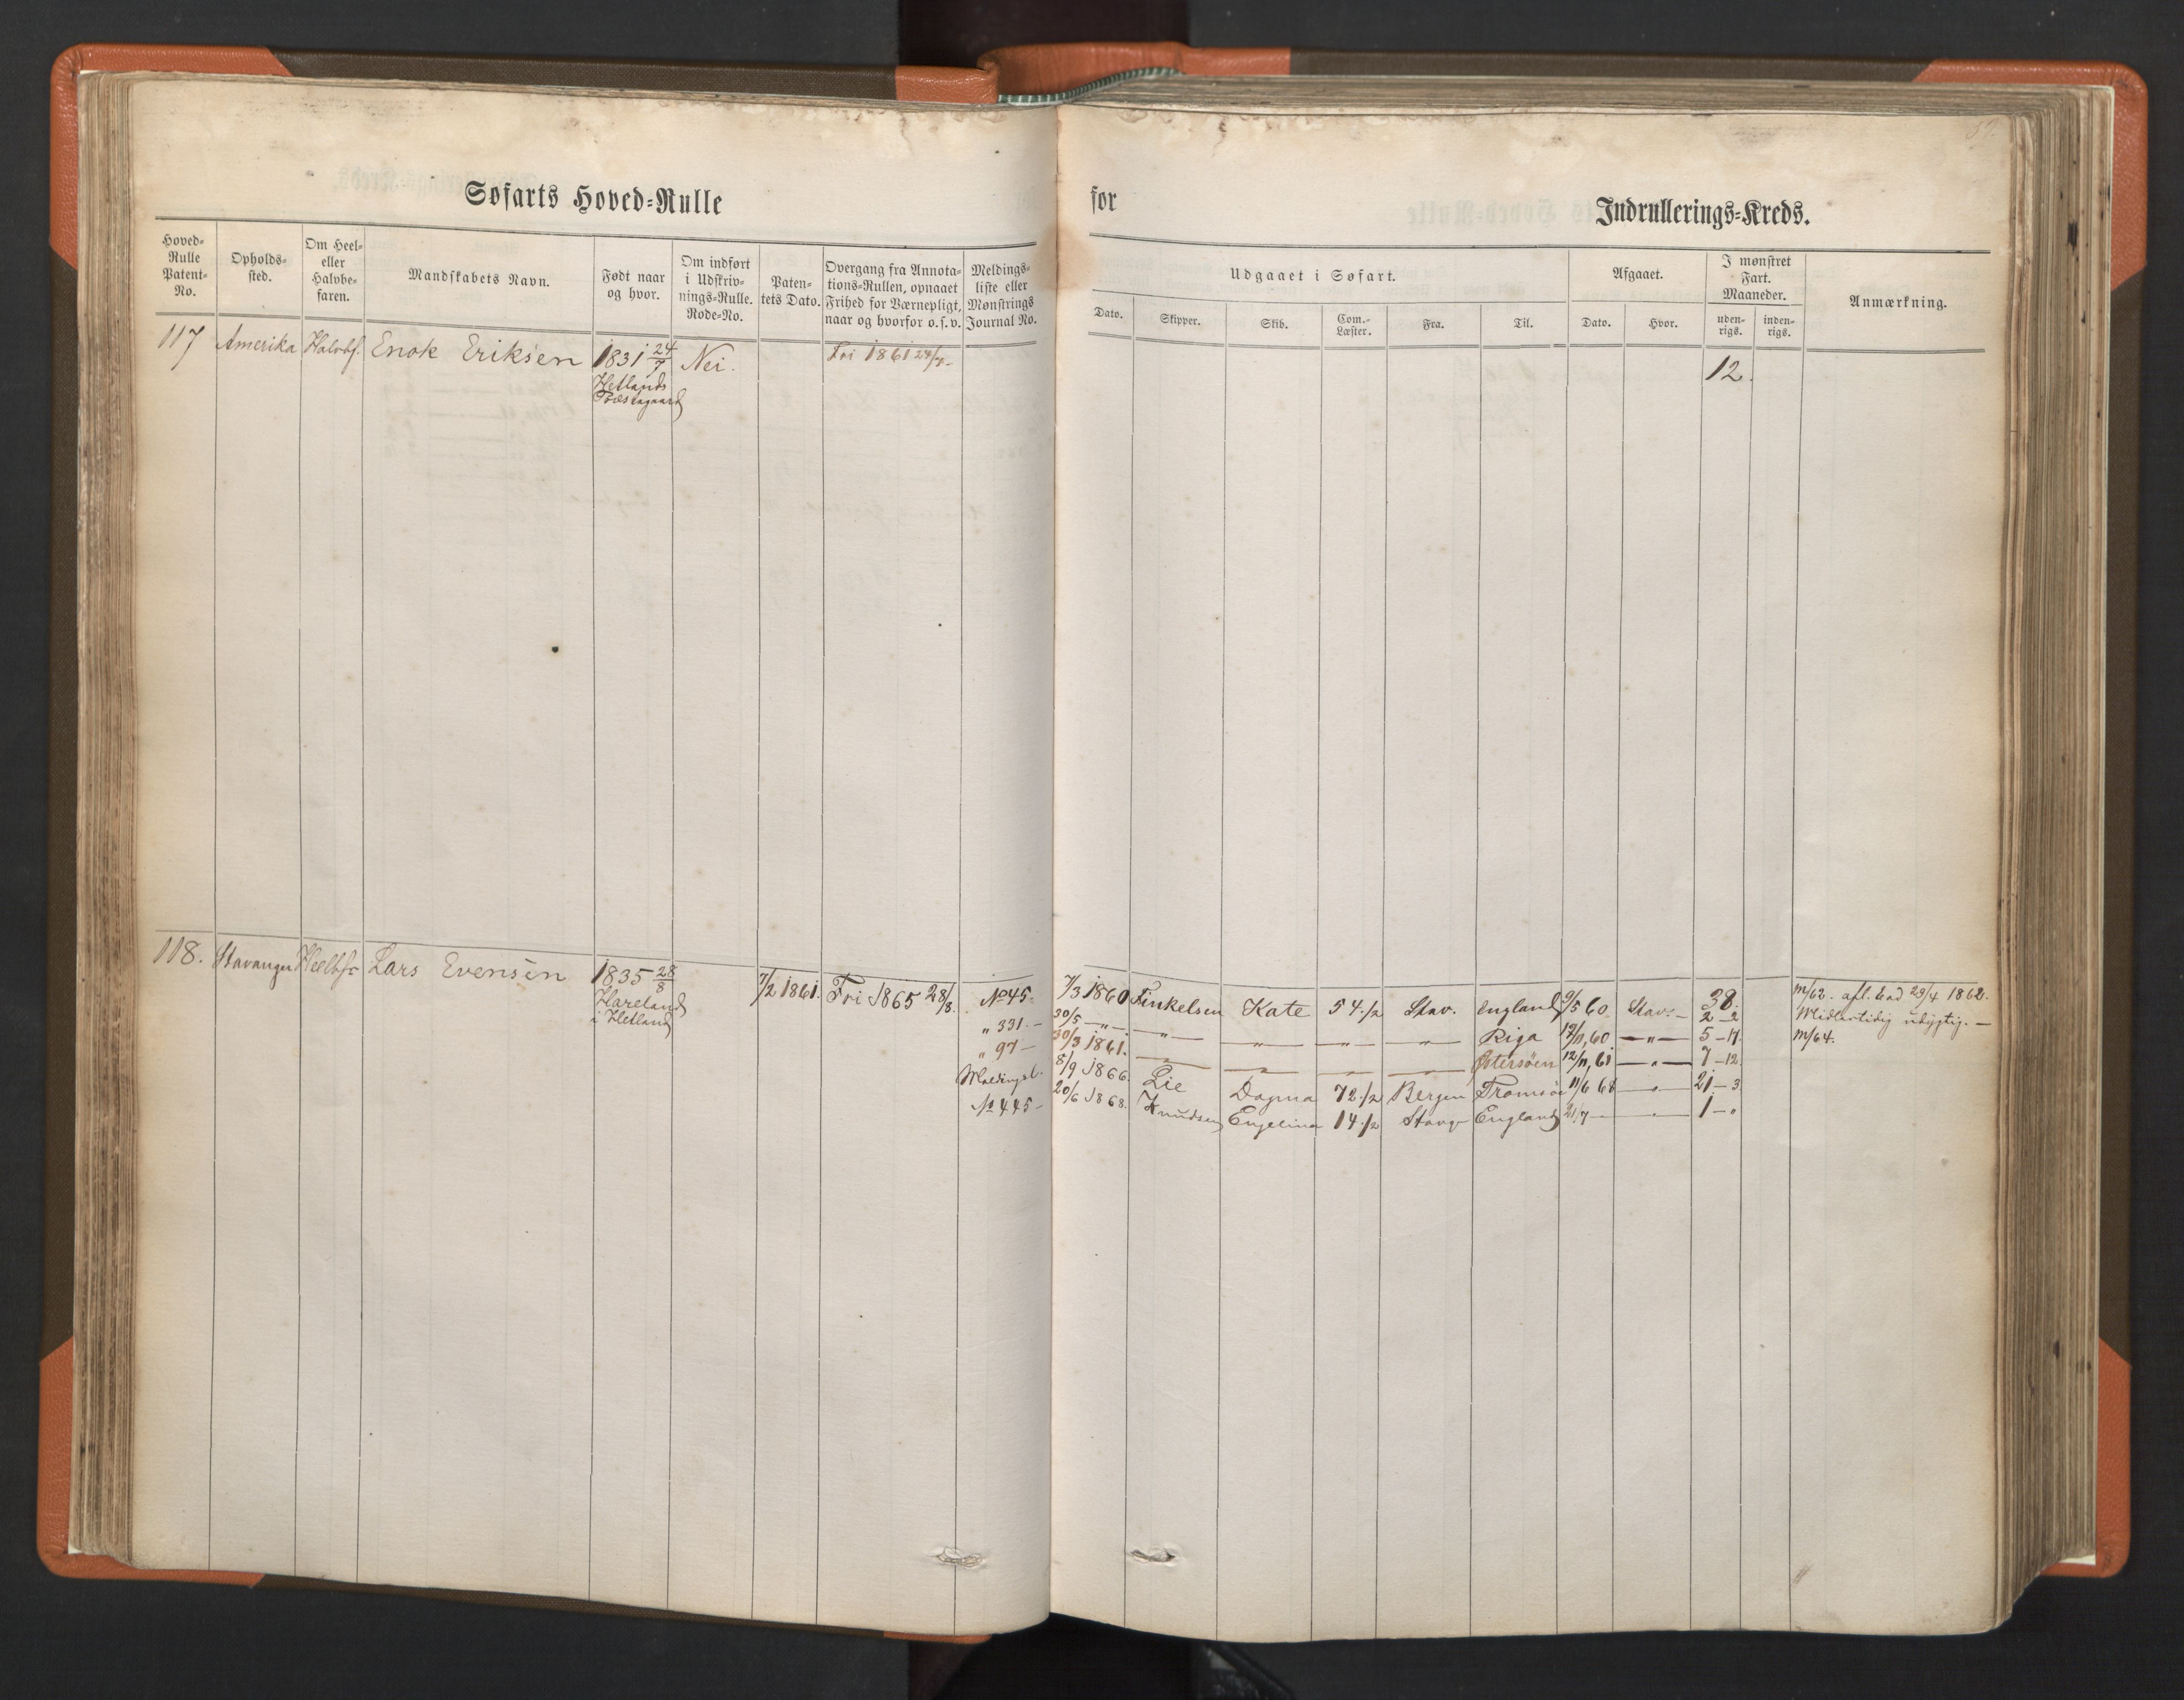 Søfarts Hoved-Rulle
for
Indrullerings-Kreds.
Hoved-
Rulle
Patent-
No.
Opholds-
sted.
Om Heel-
eller
Halvbe-
faren.
Mandskabets Navn.
Født naar
og hvor.
Om indført
i Udskriv-
nings-Rulle.
Rode-No.
Paten-
tets Dato.
Overgang fra Annota-
tions-Rullen, opnaaet
Frihed for Værnepligt,
naar og hvorfor o.s.v.
Meldings-
liste eller
Mønstrings
Journal No.
Udgaaet i Søfart.
Dato.
Skipper.
Skib.
Com.-
Læster.
Fra.
Til.
Afgaaet.
Dato.
Hvor.
I mønstret
Fart.
Maaneder.
uden-
rigs.
inden-
rigs.
Anmærkning.
117 Amerika Halvbf. Enok Eriksen 1831 24/7 Nei. Fri 1861 24/7. 12.
Hetlands
Præstegaard
118. Stavanger Heelbf. Lars Evensen 1835 28/8 7/2 1861. Fri 1865 28/8.
Hareland
i Hetland
No 45. 7/3 1860 Finkelsen Kate 54./2 Stav. England 9/5 60 Stav. 38.
2-2
" 331. 30/5 — " — — " — — " — — " — — " — Riga 19/11, 60 — " — 5-17.
" 97 — 30/3 1861. Østersøen 12/11, 61 — " — 7-12.
Meldingsl. 8/9 1866. Lie Dagma 72./2 Bergen Tromsø 11/6 68 — " — 21-3
No 445 — 20/6 1868. Knudsen Engelina 14./2 Stavg England 21/7 — 1 — "
m/62. afl. Ead 29/4 1862.
Midlertidig udygtig. —
m/64.